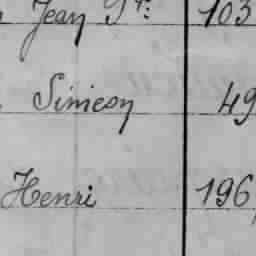 Jean Bte 103
Siméon 49
Henri 196